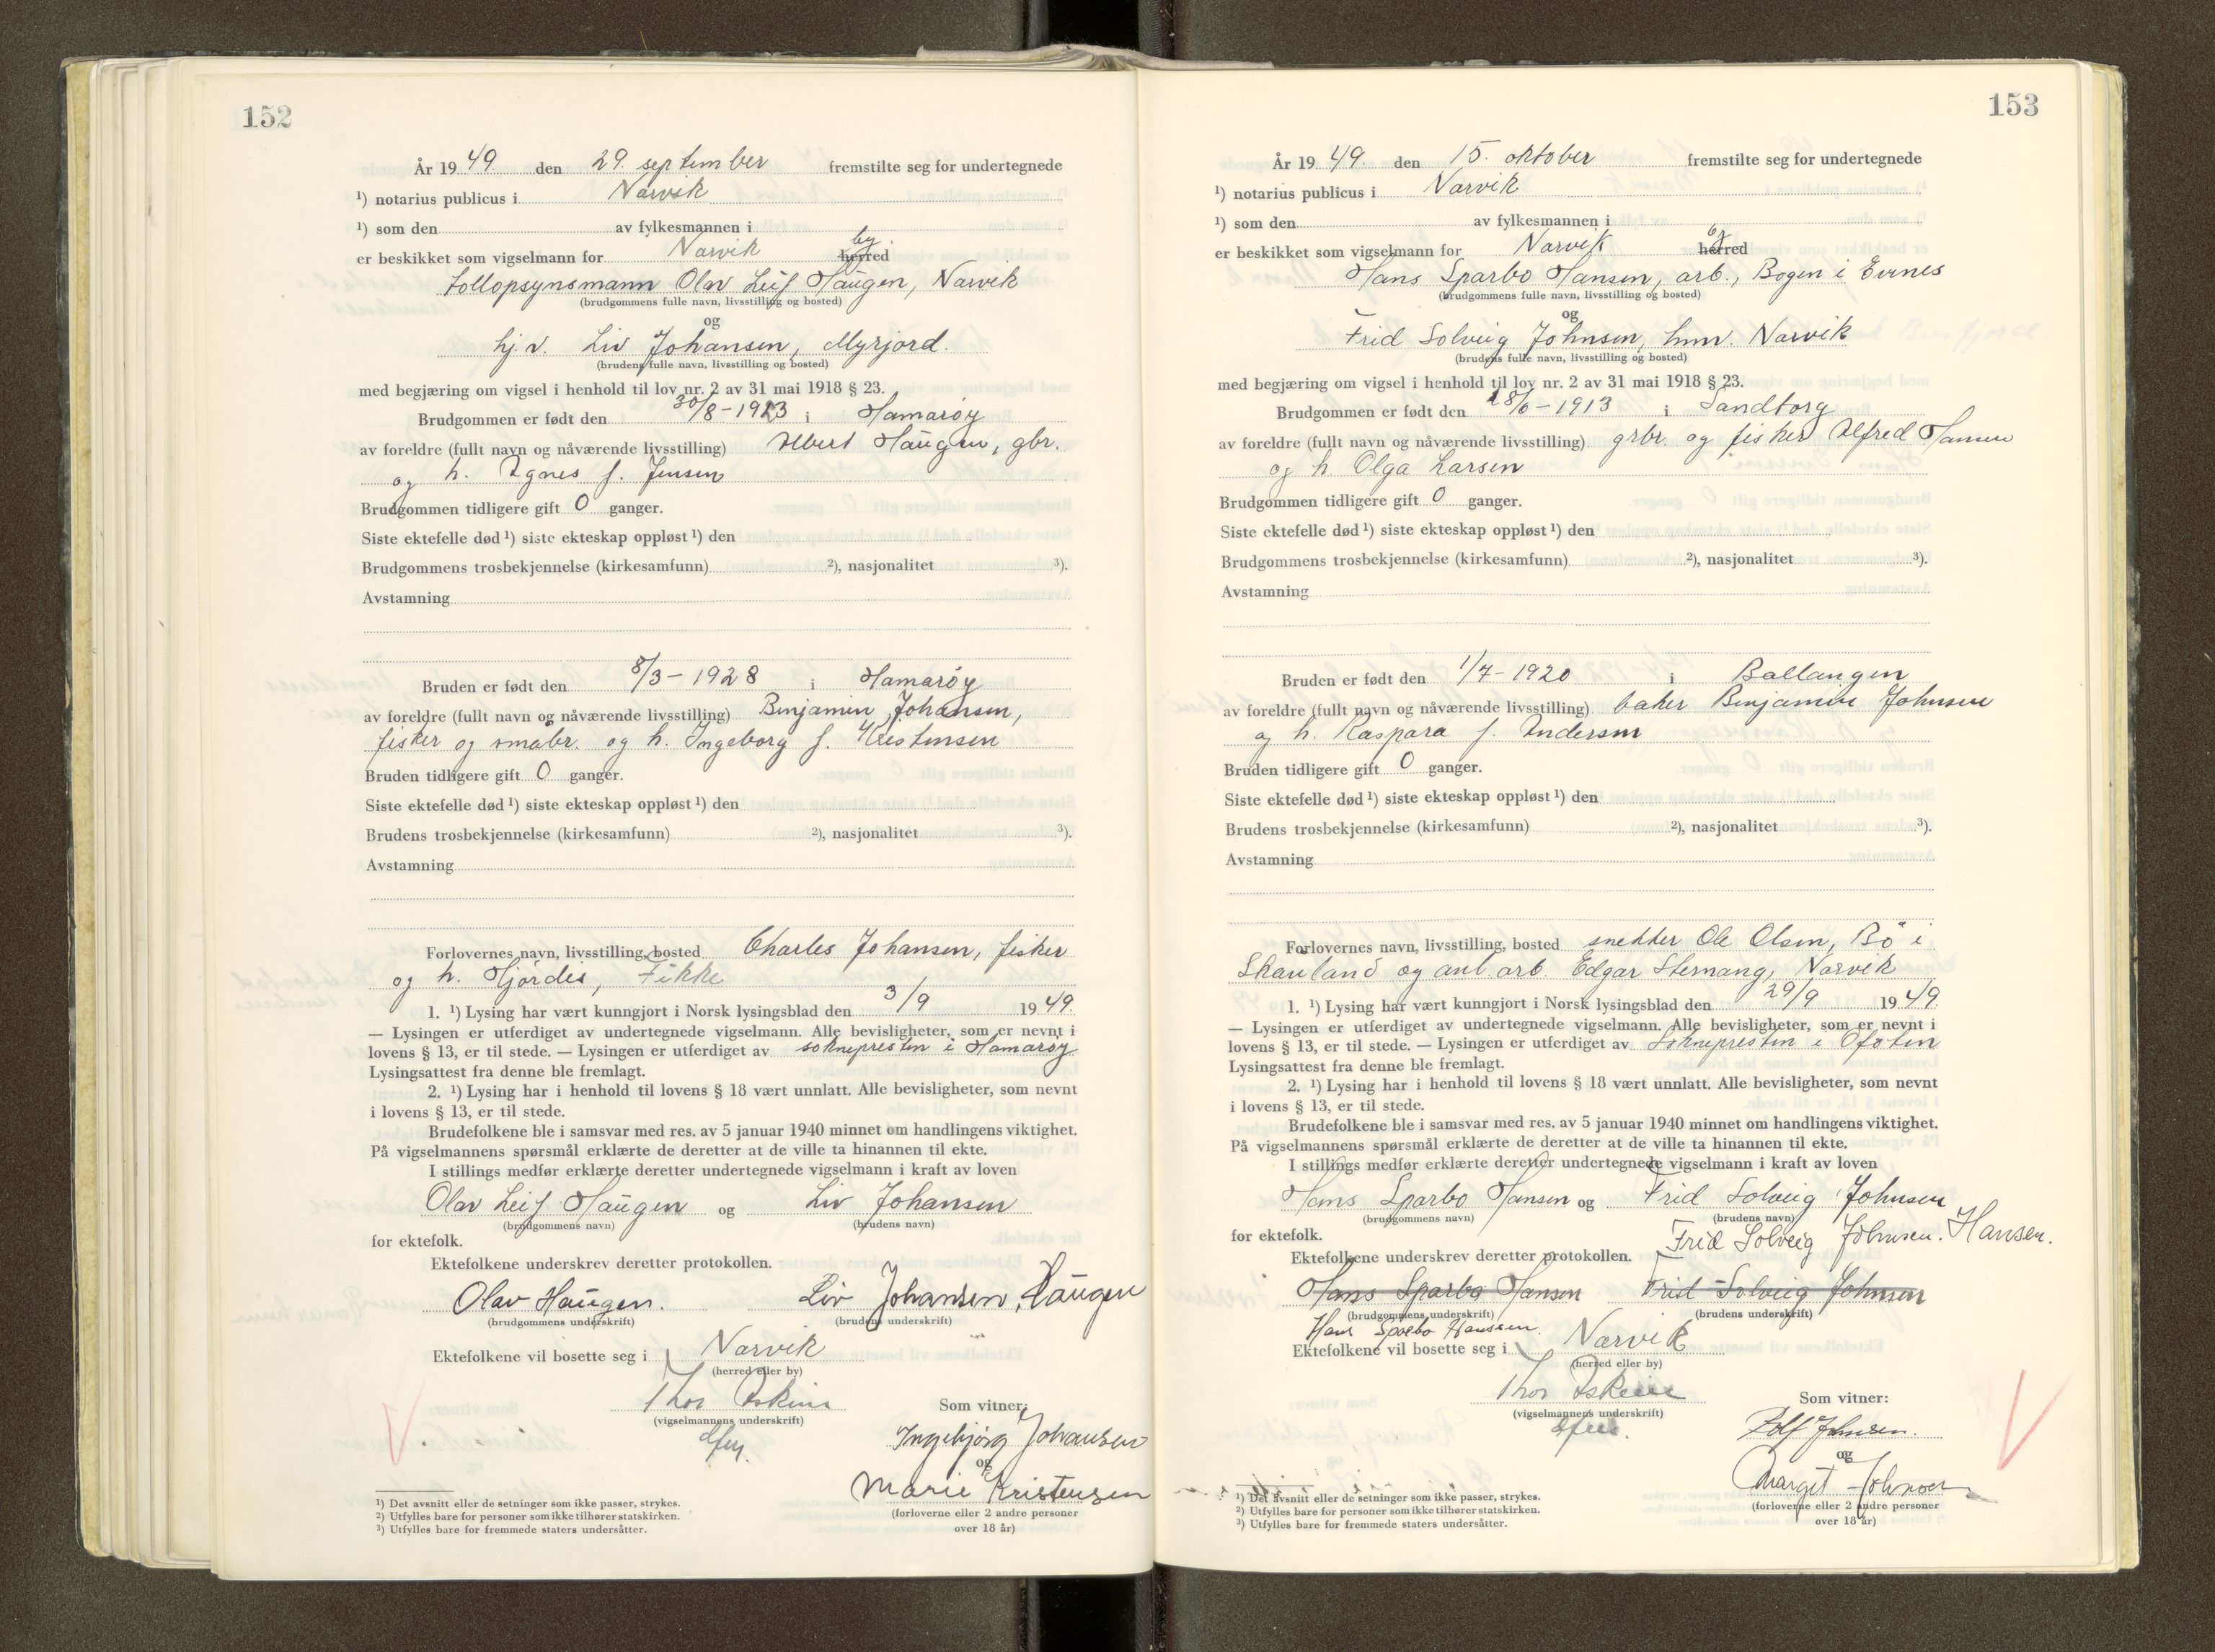 152
År 19 49 den 29. september fremstilte seg for undertegnede
¹) notarius publicus i Narvik
¹) som den av fylkesmannen i
er beskikket som vigselmann for Narvik by herred
tollopsynsmann Olav Leif Haugen, Narvik
(brudgommens fulle navn, livsstilling og bosted)
og
hj.v. Liv Johansen, Myrjord.
(brudens fulle navn, livsstilling og bosted)
med begjæring om vigsel i henhold til lov nr. 2 av 31 mai 1918 § 23.
Brudgommen er født den 30/8-1923 i Hamarøy
av foreldre (fullt navn og nåværende livsstilling) Albert Haugen, gbr.
og h. Agnes f. Jensen
Brudgommen tidligere gift 0 ganger.
Siste ektefelle død¹) siste ekteskap oppløst¹) den
Brudgommens trosbekjennelse (kirkesamfunn) ²), nasjonalitet ³).
Avstamning
Bruden er født den 8/3-1928 i Hamarøy
av foreldre (fullt navn og nåværende livsstilling) Benjamin Johansen,
fisker og småbr. og h. Ingeborg f. Kristensen
Bruden tidligere gift 0 ganger.
Siste ektefelle død¹) siste ekteskap oppløst¹) den
Brudens trosbekjennelse (kirkesamfunn) ²), nasjonalitet ³).
Avstamning
Forlovernes navn, livsstilling, bosted Charles Johansen, fisker
og h. Hjørdis, Fikke
1. ¹) Lysing har vært kunngjort i Norsk lysingsblad den 3/9 19 49.
— Lysingen er utferdiget av undertegnede vigselmann. Alle bevisligheter, som er nevnt i
lovens § 13, er til stede. — Lysingen er utferdiget av soknepresten i Hamarøy
Lysingsattest fra denne ble fremlagt.
2. ¹) Lysing har i henhold til lovens § 18 vært unnlatt. Alle bevisligheter, som nevnt
i lovens § 13, er til stede.
Brudefolkene ble i samsvar med res. av 5 januar 1940 minnet om handlingens viktighet.
På vigselmannens spørsmål erklærte de deretter at de ville ta hinannen til ekte.
I stillings medfør erklærte deretter undertegnede vigselmann i kraft av loven
Olav Leif Haugen og Liv Johansen
(brudgommens navn) (brudens navn)
for ektefolk.
Ektefolkene underskrev deretter protokollen.
Olav Haugen. Liv Johansen, Haugen
(brudgommens underskrift) (brudens underskrift)
Ektefolkene vil bosette seg i Narvik
(herred eller by)
Thor
(vigselmannens underskrift)
Som vitner:
Ingebjørg Johansen
og
Marie Kristensen
(forloverne eller 2 andre personer
over 18 år)
¹) Det avsnitt eller de setninger som ikke passer, strykes.
²) Utfylles bare for personer som ikke tilhører statskirken.
³) Utfylles bare for fremmede staters undersåtter.
153
År 19 49. den 15. oktober fremstilte seg for undertegnede
¹) notarius publicus i Narvik
¹) som den av fylkesmannen i
er beskikket som vigselmann for Narvik by herred
Hans Sparbo Hansen, arb., Bogen i Evenes
(brudgommens fulle navn, livsstilling og bosted)
og
Frid Solveig Johnsen, hmv. Narvik
(brudens fulle navn, livsstilling og bosted)
med begjæring om vigsel i henhold til lov nr. 2 av 31 mai 1918 § 23.
Brudgommen er født den 18/6-1913 i Sandtorg
av foreldre (fullt navn og nåværende livsstilling) grbr. og fisker Alfred Hansen
og h. Olga Larsen
Brudgommen tidligere gift 0 ganger.
Siste ektefelle død¹) siste ekteskap oppløst¹) den
Brudgommens trosbekjennelse (kirkesamfunn) ²), nasjonalitet ³).
Avstamning
Bruden er født den 1/7-1920 i Ballangen
av foreldre (fullt navn og nåværende livsstilling) baker Benjamin Johnsen
og h. Kaspara f. Andersen
Bruden tidligere gift 0 ganger.
Siste ektefelle død¹) siste ekteskap oppløst¹) den
Brudens trosbekjennelse (kirkesamfunn) ²), nasjonalitet ³).
Avstamning
Forlovernes navn, livsstilling, bosted snekker Ole Olsen, Bö i
Skånland og anl.arb. Edgar Stemang, Narvik
1. ¹) Lysing har vært kunngjort i Norsk lysingsblad den 29/9 19 49.
— Lysingen er utferdiget av undertegnede vigselmann. Alle bevisligheter, som er nevnt i
lovens § 13, er til stede. — Lysingen er utferdiget av Soknepresten i Ofoten
Lysingsattest fra denne ble fremlagt.
2. ¹) Lysing har i henhold til lovens § 18 vært unnlatt. Alle bevisligheter, som nevnt
i lovens § 13, er til stede.
Brudefolkene ble i samsvar med res. av 5 januar 1940 minnet om handlingens viktighet.
På vigselmannens spørsmål erklærte de deretter at de ville ta hinannen til ekte.
I stillings medfør erklærte deretter undertegnede vigselmann i kraft av loven
Hans Sparbo Hansen og Frid Solveig Johnsen
(brudgommens navn) (brudens navn)
for ektefolk. Frid Solveig Johnsen. Hansen.
Ektefolkene underskrev deretter protokollen.
Hans Sparbo Hansen Frid Solveig Johnsen
(brudgommens underskrift) (brudens underskrift)
Hans Sparbo Hansen.
Ektefolkene vil bosette seg i Narvik
(herred eller by)
Thor
(vigselmannens underskrift)
Som vitner:
Rolf Johnsen.
og
Margit Johnsen
(forloverne eller 2 andre personer
over 18 år)
¹) Det avsnitt eller de setninger som ikke passer, strykes.
²) Utfylles bare for personer som ikke tilhører statskirken.
³) Utfylles bare for fremmede staters undersåtter.